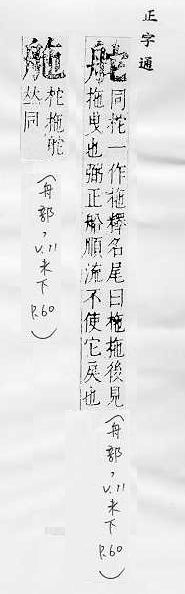 正字通
舵
同柁一作拖釋名尾曰柂拖後見
拖曳也弼正船順流不使它戾也
(舟部,V.11未下P.60)
舵
柁拖舵
𠀤同
(舟部,V.11未下P.60)